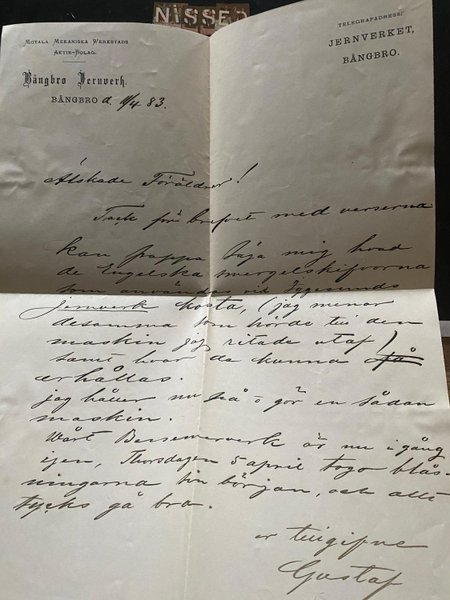 NISSE
MOTALA MEKANISKA WERKSTADS
AKTIE-BOLAG.
Bångbro Jernverk.
BÅNGBRO d. 11/4 83.
TELEGRAFADRESS:
JERNVERKET,
BÅNGBRO.
Älskade Föräldrar!
Tack för brefvet med verserna
kan pappa säja mig hvad
de Engelska smergelskifvorna
som användas vid Iggesunds
Jernverk kosta, (jag menar
desamma som hörde till den
maskin jag ritade utaf)
samt hvar de kunna få
erhållas.
Jag håller nu på o gör en sådan
maskin.
Vårt Bessemerverk är nu i gång
igen, Thorsdagen 5 april togo blås-
ningarna sin början, och allt
tycks gå bra.
er tillgifne
Gustaf